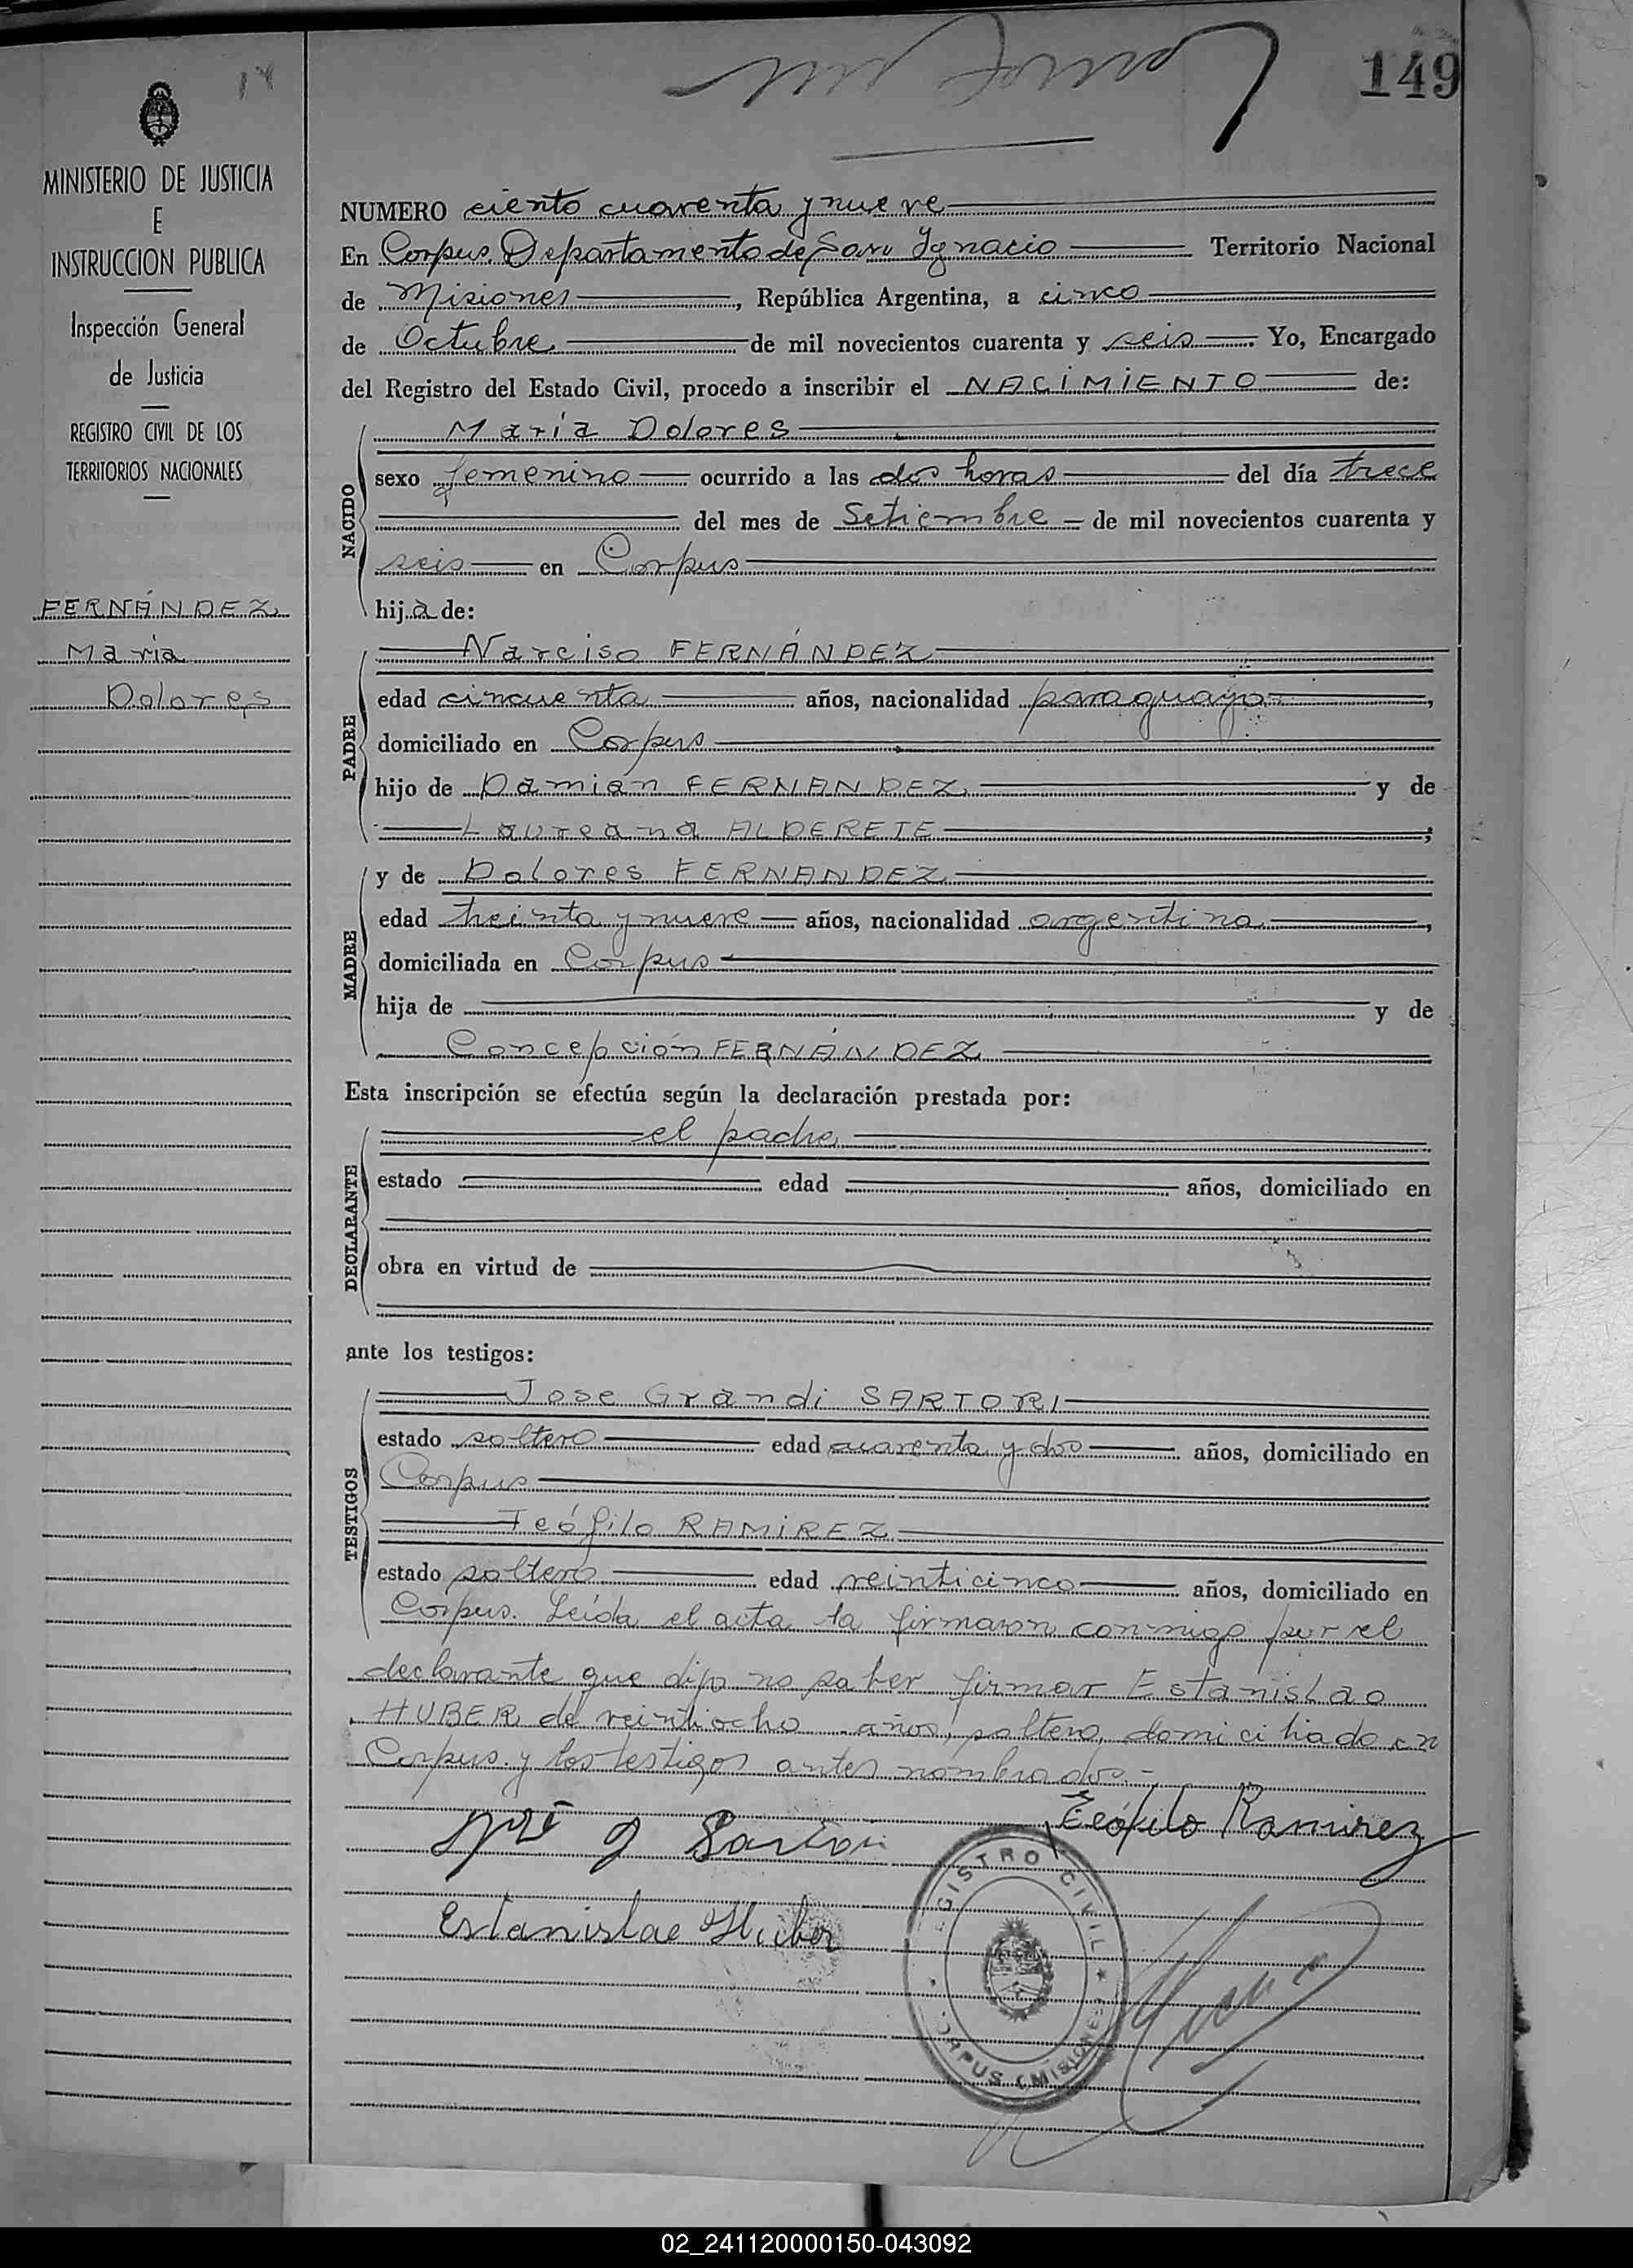 149
14
MINISTERIO DE JUSTICIA
E
INSTRUCCION PUBLICA
Inspección General
de Justicia
REGISTRO CIVIL DE LOS
TERRITORIOS NACIONALES
FERNÁNDEZ
Maria
Dolores
NUMERO ciento cuarenta y nueve
En Corpus Departamento de San Ignacio Territorio Nacional
de Misiones, República Argentina, a cinco
de Octubre de mil novecientos cuarenta y seis. Yo, Encargado
del Registro del Estado Civil, procedo a inscribir el NACIMIENTO de:
NACIDO
María Dolores
sexo femenino ocurrido a las dos horas del día trece
del mes de Setiembre de mil novecientos cuarenta y
seis en Corpus
hija de:
PADRE
Narciso FERNÁNDEZ
edad cincuenta años, nacionalidad paraguayo,
domiciliado en Corpus
hijo de Damián FERNANDEZ y de
Laureana ALDERETE;
MADRE
y de Dolores FERNANDEZ
edad treinta y nueve años, nacionalidad argentina,
domiciliada en Corpus
hija de y de
Concepción FERNÁNDEZ
Esta inscripción se efectúa según la declaración prestada por:
DECLARANTE
el padre
estado edad años, domiciliado en
obra en virtud de
ante los testigos:
TESTIGOS
Jose Grandi SARTORI
estado soltero edad cuarenta y dos años, domiciliado en
Corpus
Teófilo RAMIREZ
estado soltero edad veinticinco años, domiciliado en
Corpus. Leída el acta la firmaron conmigo por el
declarante que dijo no saber firmar Estanislao
HUBER de veintiocho años, soltero, domiciliado en
Corpus y los testigos antes nombrados.-
Teófilo Ramirez
José G Sartori
Estanislao Huber
GISTRO CIVIL
ORPUS (MISIONES)
02_241120000150-043092